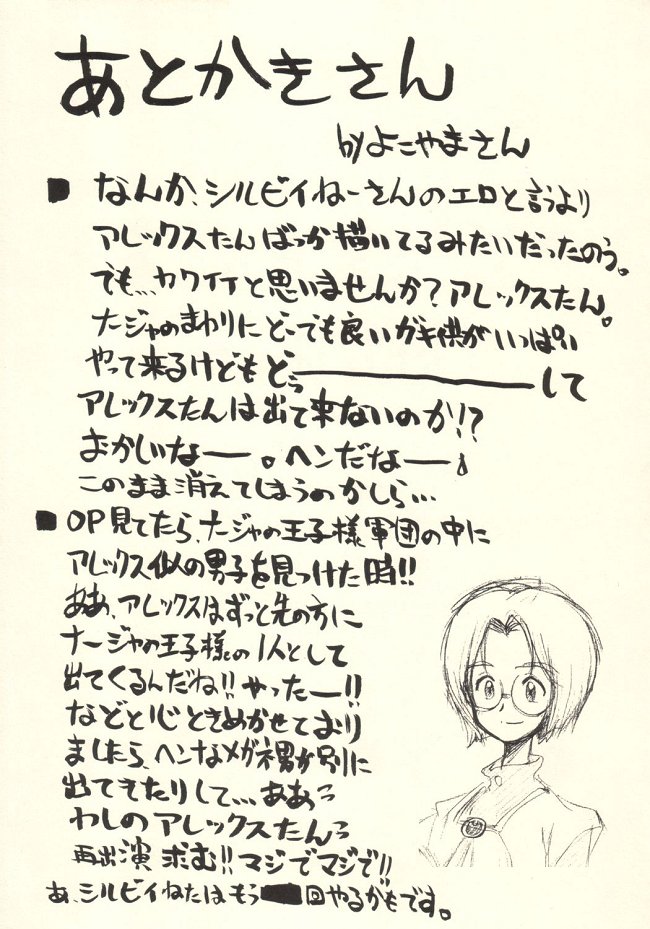 あとかきさん
byよこやまさん
■ なんか、シルビイねーさんのエロと言うより
アレックスたんばっか描いてるみたいだったのう。
でも…カワイイと思いませんか？アレックスたん。
ナージャのまわりにどーでも良いガキ供がいっぱい
やって来るけどもどぅ――――して
アレックスたんは出て来ないのか！？
おかしいなー。ヘンだなー。
このまま消えてしまうのかしら…
■ OP見てたら、ナージャの王子様軍団の中に
アレックス似の男子を見つけた時！！
ああ、アレックスはずっと先の方に
ナージャの王子様の1人として
出てくるんだね！！やったー！！
などと心ときめかせており
ましたら、ヘンなメガネ男が別に
出てきたりして…ああっ
わしのアレックスたんっ
再出演求む！！マジでマジで！！
あ、シルビイねたはもう回やるかもです。